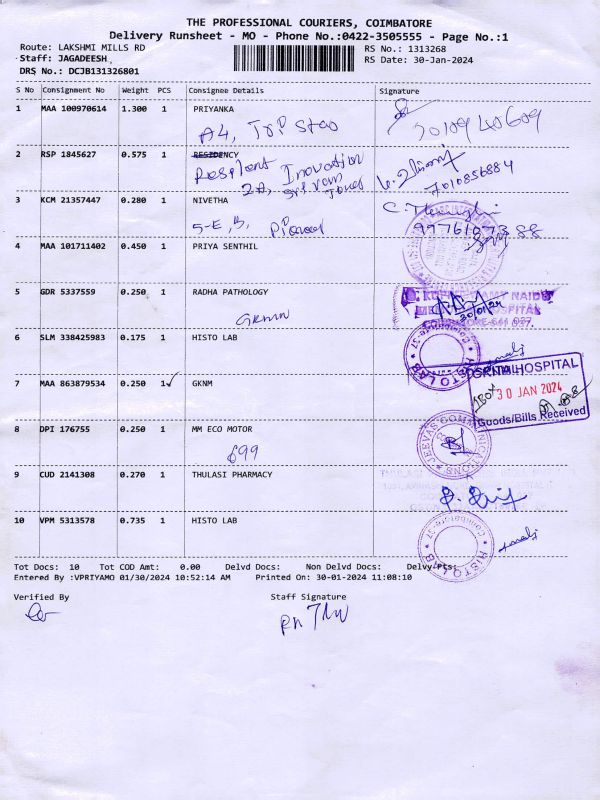 THE PROFESSIONAL COURIERS, COIMBATORE
Delivery Runsheet - MO - Phone No.:0422-3505555 - Page No.:1
Route: LAKSHMI MILLS RD
RS No.: 1313268
Staff: JAGADEESH
RS Date: 30-Jan-2024
DRS No.: DCJB131326801
S No Consignment No Weight PCS Consignee Details Signature
1 MAA 100970614 1.300 1 PRIYANKA
A4,
2 RSP 1845627 0.575 1 RESIDENCY
Inovation
7010856884
3 KCM 21357447 0.280 1 NIVETHA
5-E, B,
4 MAA 101711402 0.450 1 PRIYA SENTHIL
5 GDR 5337559 0.250 1 RADHA PATHOLOGY
NAIDU
HOSPITAL
30/01/24
6 SLM 338425983 0.175 1 HISTO LAB
HISTO LAB
Coimbatore-37
7 MAA 863879534 0.250 1 ✓ GKNM
HOSPITAL
30 JAN 2024
Goods/Bills Received
8 DPI 176755 0.250 1 MM ECO MOTOR
699
JEEVAS COMMUNICATIONS
9 CUD 2141308 0.270 1 THULASI PHARMACY
10 VPM 5313578 0.735 1 HISTO LAB
HISTO LAB
Coimbatore-37
Tot Docs: 10 Tot COD Amt: 0.00 Delvd Docs: Non Delvd Docs: Delvy Pts:
Entered By :VPRIYAMO 01/30/2024 10:52:14 AM Printed On: 30-01-2024 11:08:10
Verified By Staff Signature